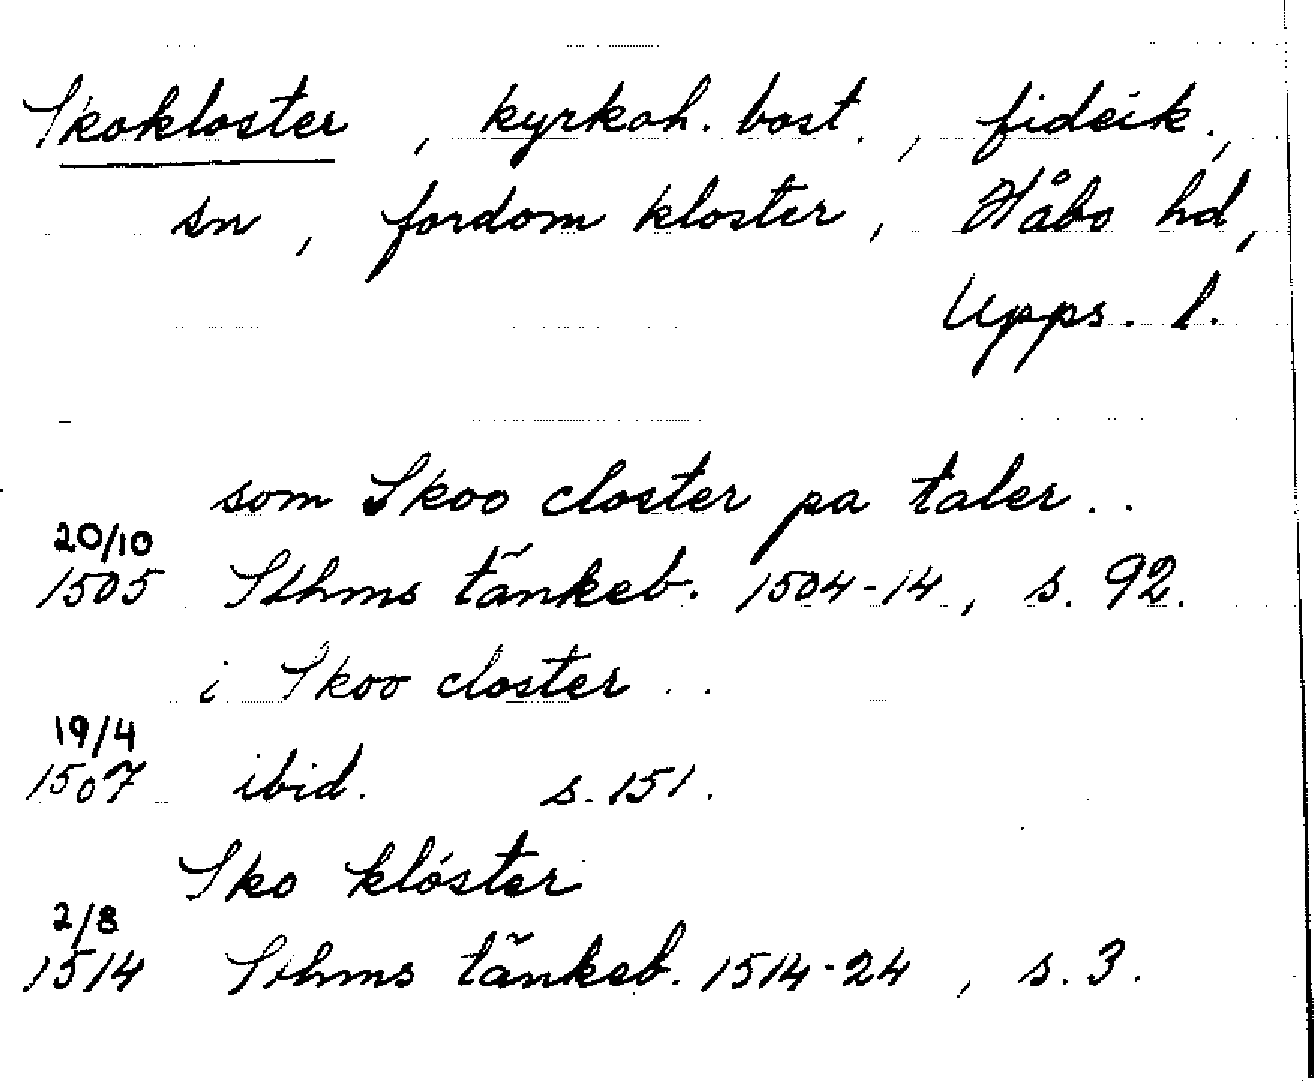 Skokloster, kyrkoh. bost., fideik.,
sn, fordom kloster, Håbo hd,
Upps. l.
som Skoo closter pa taler..
20/10
1505 Sthms tänkeb. 1504-14, s. 92.
i Skoo closter..
19/4
1507 ibid. s. 151.
Sko klóster
2/8
1514 Sthms tänkeb. 1514-24, s. 3.